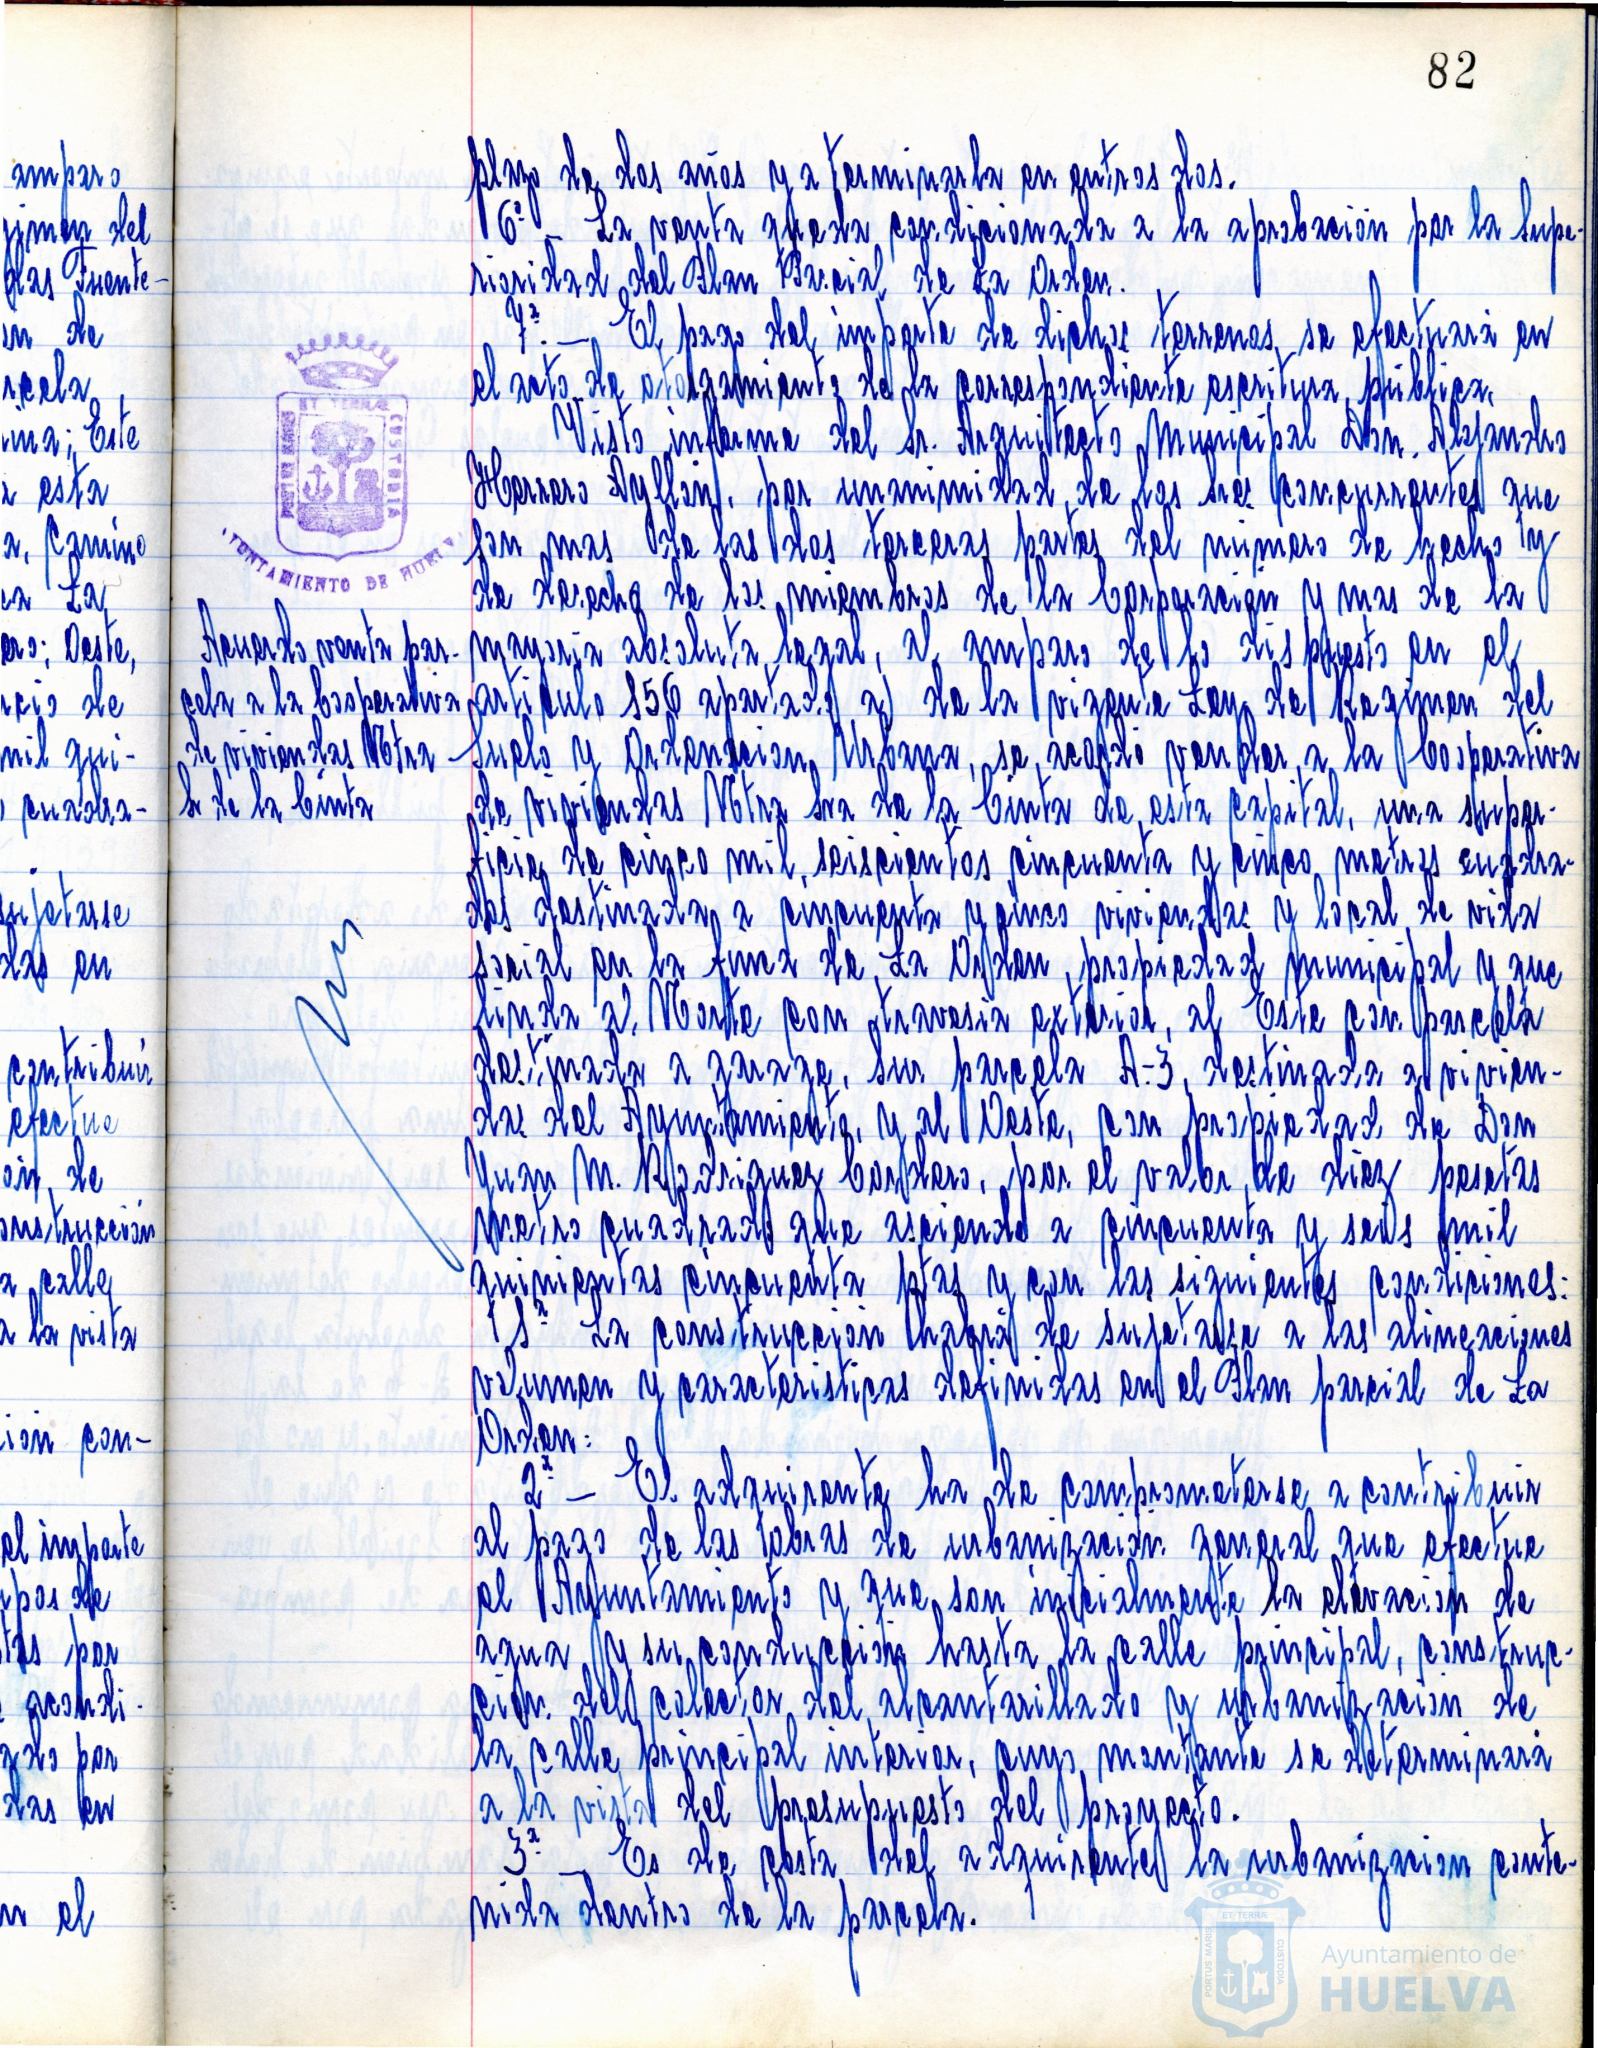 82
amparo
gimen del
das Fuente-
en de
rcela,
ina; Este
a esta
a, camino
La
ero; Oeste,
rcio de
mil qui-
cuadra-
sujetarse
das en
contribuir
efectue
ón de
onstrucción
a calle
a la vista
ción con-
el importe
upos de
tas por
acondi-
ado por
das en
n el
plazo de dos años y a terminarla en outros dos.
6ª _ La venta queda condicionada a la aprobación por la Supe-
rioridad del Plan Parcial de La Orden.
7ª. _ El pago del importe de dichos terrenos se efectuará en
el acto de otorgamiento de la correspondiente escritura pública.
Visto informe del Sr. Arquitecto Municipal Don. Alejandro
Herrero Ayllón, por unanimidad de los Sres. concurrentes que
son mas de las dos terceras partes del número de hecho y
de derecho de los miembros de la Corporación y mas de la
mayoría absoluta legal, al amparo de lo dispuesto en el
articulo 156 apartado a) de la vigente Ley de Regimen del
Suelo y Ordenacion Urbana, se acordó vender a la Cooperativa
de viviendas Ntra Sra de la Cinta de esta capital, una super-
ficie de cinco mil seiscientos cincuenta y cinco metros cuadra-
dos destinada a cincuenta y cinco viviendas y local de vida
social en la finca de La Orden, propiedad municipal y que
linda al Norte con travesia exterior, al Este con parcela
destinada a garage, Sur parcela A-3, destinada a vivien-
das del Ayuntamiento, y al Oeste, con propiedad de Don
Juan M. Rodriguez Cordero, por el valor de diez pesetas
metro cuadrado que asciende a cincuenta y seis mil
quinientas cincuenta ptas y con las siguientes condiciones:
1ª La construcción habrá de sujetarse a las alineaciones
volumen y caracteristicas definidas en el Plan parcial de La
Orden:
2ª _ El adquirente ha de comprometerse a contribuir
al pago de las obras de urbanización general que efectue
el Ayuntamiento y que son inicialmente la elevacion de
agua y su conducción hasta la calle principal, construc-
ción del colector del alcantarillado y urbanizacion de
la calle principal interior, cuyo montante se determinará
a la vista del presupuesto del proyecto.
3ª _ Es de costa del adquirente la urbanizacion conte-
nida dentro de la parcela.
PORTUS MARIS ET TERRÆ CUSTODIA
AYUNTAMIENTO DE HUELVA
Acuerdo venta par-
cela a la Cooperativa
de viviendas Ntra
Sr de la Cinta
PORTUS MARIS ET TERRÆ CUSTODIA
Ayuntamiento de
HUELVA